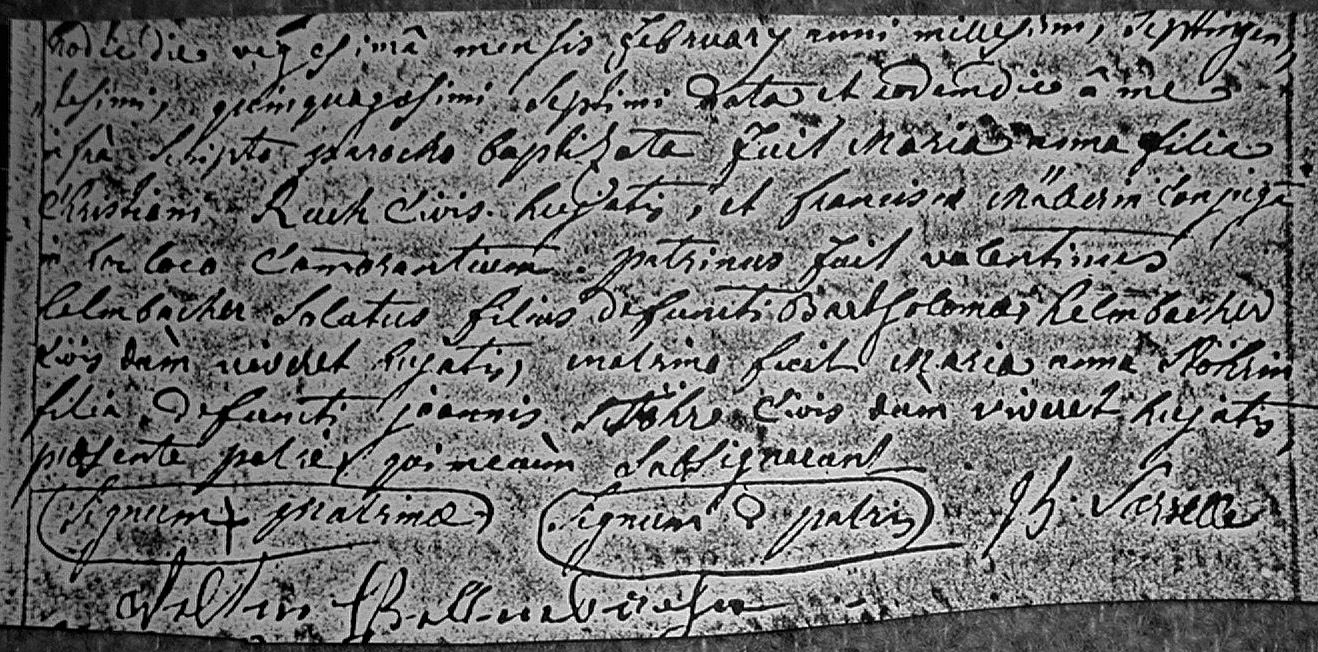 hodie die vigesimâ mensis february anni millesimi, septingen,
tesimi, quinquagesimi septimi nata et eodem die â me
infrà scripto parocho baptizata fuit Maria anna filia
Christiani Ruch Civis hujatis, et francisca Mäderin Conjugū
in hoc loco Commorantium. patrinus fuit valentinus
helmbacher solutus filius defuncti Bartholomæi helmbacher
Civis dùm viveret hujatis, matrina fuit Maria anna Stöhrin
filia defuncti joannis Stöhre Civis dùm viveret hujatis,
præsente patre qui mecùm subsignarunt
Signum + matrinæ Signum O patris
Valtin